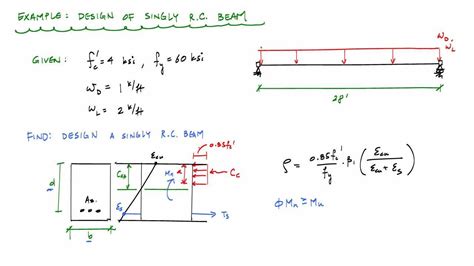 EXAMPLE: DESIGN OF SINGLY R.C. BEAM
GIVEN: f'c = 4 ksi, fy = 60 ksi
WD = 1 k/ft
WL = 2 k/ft
WD,
WL
28'
FIND: DESIGN A SINGLY R.C. BEAM
d
As
b
Ɛcu
0.85fc'
a
Cc
Mn
Ɛs
Ts
ρ = 0.85fc'/fy · β1 (Ɛcu/(Ɛcu + Ɛs))
ϕMn ≥ Mu